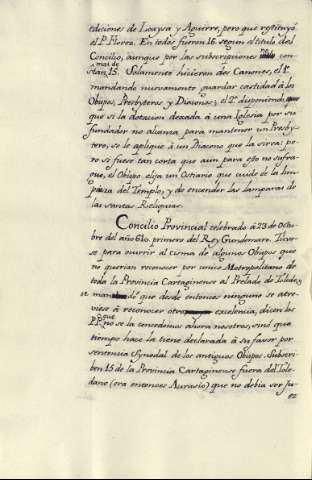 ediciones de Loaysa y Aguirre, pero que restituyó
el P. Florez. En todos fueron 16. segun el titulo del
Concilio, aunque por las subscripciones
mas de
stan 15. Solamente hicieron dos Canones, el 1º
mandando nuevamente guardar castidad à los
Obispos, Presbyteros y Diaconos; el 2º disponiendo
que si la dotacion dexada à una Iglesia por su
fundador no alcanza para mantener un Presby-
tero, se le aplique à un Diacono que la sirva: pe-
ro si fuese tan corta que aun para esto no sufra-
gue, el Obispo elija un Ostiario que cuide de la lim-
pieza del Templo, y de encender las lamparas de
las santas Reliquias.
Concilio Provincial celebrado à 23 de Octu-
bre del año 610. primero del Rey Gundemaro. Tuvo-
se para ocurrir al cisma de algunos Obispos que
no querian reconocer por unico Metropolitano de
toda la Provincia Cartaginense al Prelado de Toledo;
se mandó que desde entonces ninguno se atre-
viese à reconocer otra excelencia, dicen los
PP. que
no se la concedimos ahora nosotros, sinó que
tiempo hace la tiene declarada à su favor por
sentencia Synodal de los antiguos Obispos. Subscri-
ben 15 de la Provincia Cartaginense fuera del Tole-
dano (era entonces Aurasio) que no debia ser ju-
ez